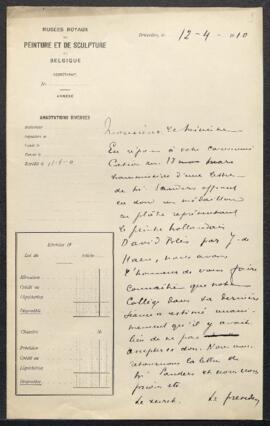 MUSÉES ROYAUX
DE
PEINTURE ET DE SCULPTURE
DE
BELGIQUE
SECRÉTARIAT.
N°
ANNEXE
ANNOTATIONS DIVERSES
Bruxelles, le 12-4-1910
Monsieur le Ministre
En réponse à votre communi
cation du 12 mars
transmissive d'une lettre
de Mr Sanders offrant
en don un médaillon
en plâtre représentant
le peintre hollandais
David Bles par J. de
Haen, nous avons
l'honneur de vous faire
connaître que notre
Collège dans sa dernière
séance a estimé unani-
mement qu'il y avait
lieu de ne pas
accepter ce don. Nous
retournons la lettre de
Mr Sanders et nous vous
prions etc
Le secrét. Le président
Exercice 19
Article
Allocation
Crédit ou
Liquidation
Disponible
Chapitre
Prévision
Crédit ou
Liquidation
Disponible